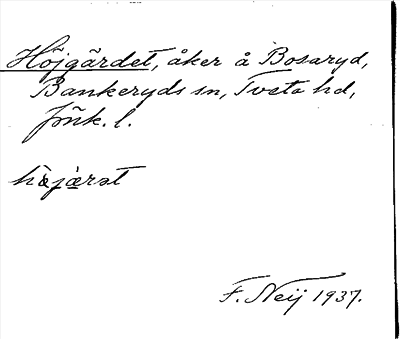 Höjgärdet, åker å Bosaryd,
Bankeryds sn, Tveta hd,
Jönk. l.
hæjærət
F. Neij 1937.